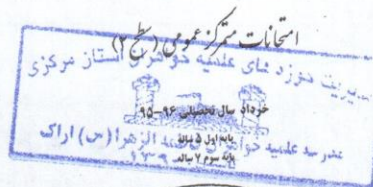 امتحانات متمرکز عمومی (سطح ۲)
مدیریت حوزه های علمیه خواهران استان مرکزی
خرداد سال تحصیلی ۹۶-۹۵
پایه اول ۵ ساله
مدرسه علمیه خواهران الزهرا (س) اراک
پایه سوم ۷ ساله